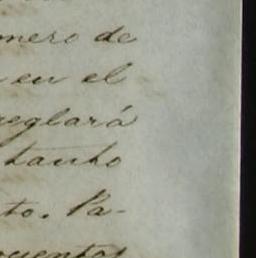 mero de
en el
reglará
tanto
to. Pa-
cuentas